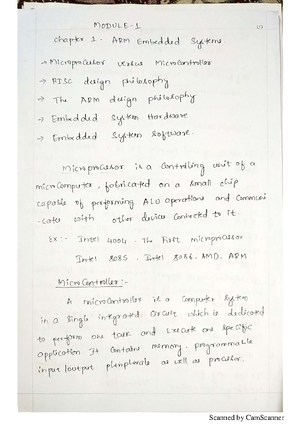 MODULE-1
Chapter 1 - ARM Embedded Systems.
→ Microprocessor versus Microcontroller
→ RISC design philosophy
→ The ARM design philosophy
→ Embedded System Hardware
→ Embedded System Software.
Microprocessor is a controlling unit of a
microcomputer, fabricated on a small chip
capable of performing ALU operations and Communi
-cates with other device connected to it.
Ex:- Intel 4004 - The First microprocessor
Intel 8085, Intel 8086, AMD, ARM
Microcontroller:-
A microcontroller is a computer system
in a single integrated circuit which is dedicated
to perform one task and execute one specific
application It contains memory, programmable
input/output peripherals as well as processor.
Scanned by CamScanner